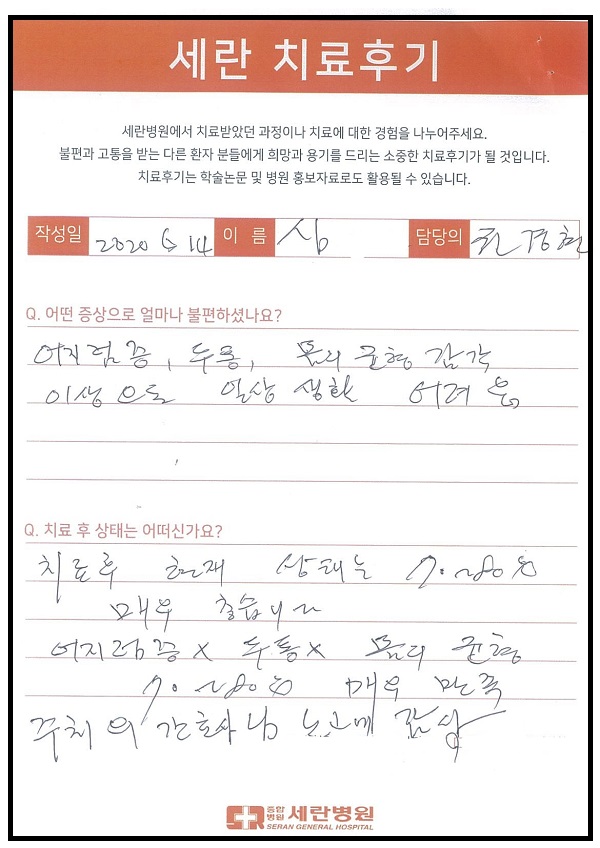 세란 치료후기
세란병원에서 치료받았던 과정이나 치료에 대한 경험을 나누어주세요.
불편과 고통을 받는 다른 환자 분들에게 희망과 용기를 드리는 소중한 치료후기가 될 것입니다.
치료후기는 학술논문 및 병원 홍보자료로도 활용될 수 있습니다.
작성일 2020 6 14 이 름 심 담당의 권경현
Q. 어떤 증상으로 얼마나 불편하셨나요?
어지럼증, 두통, 몸의 균형 감각
이상으로 일상 생활 어려움
Q. 치료 후 상태는 어떠신가요?
치료후 현재 상태는 70~80%
매우 좋습니다
어지럼증 x 두통 x 몸의 균형
70~80% 매우 만족
주치의 간호사님 노고에 감사
종합병원 세란병원
SERAN GENERAL HOSPITAL